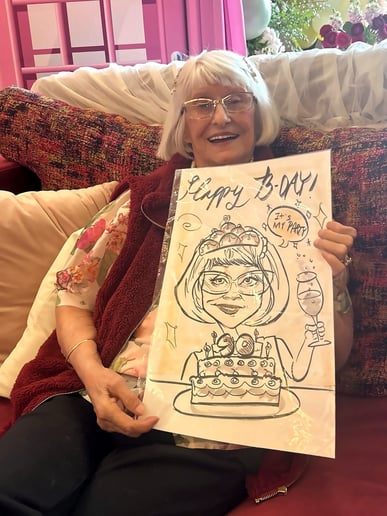 Happy B-DAY!
IT'S
MY PARTY
90